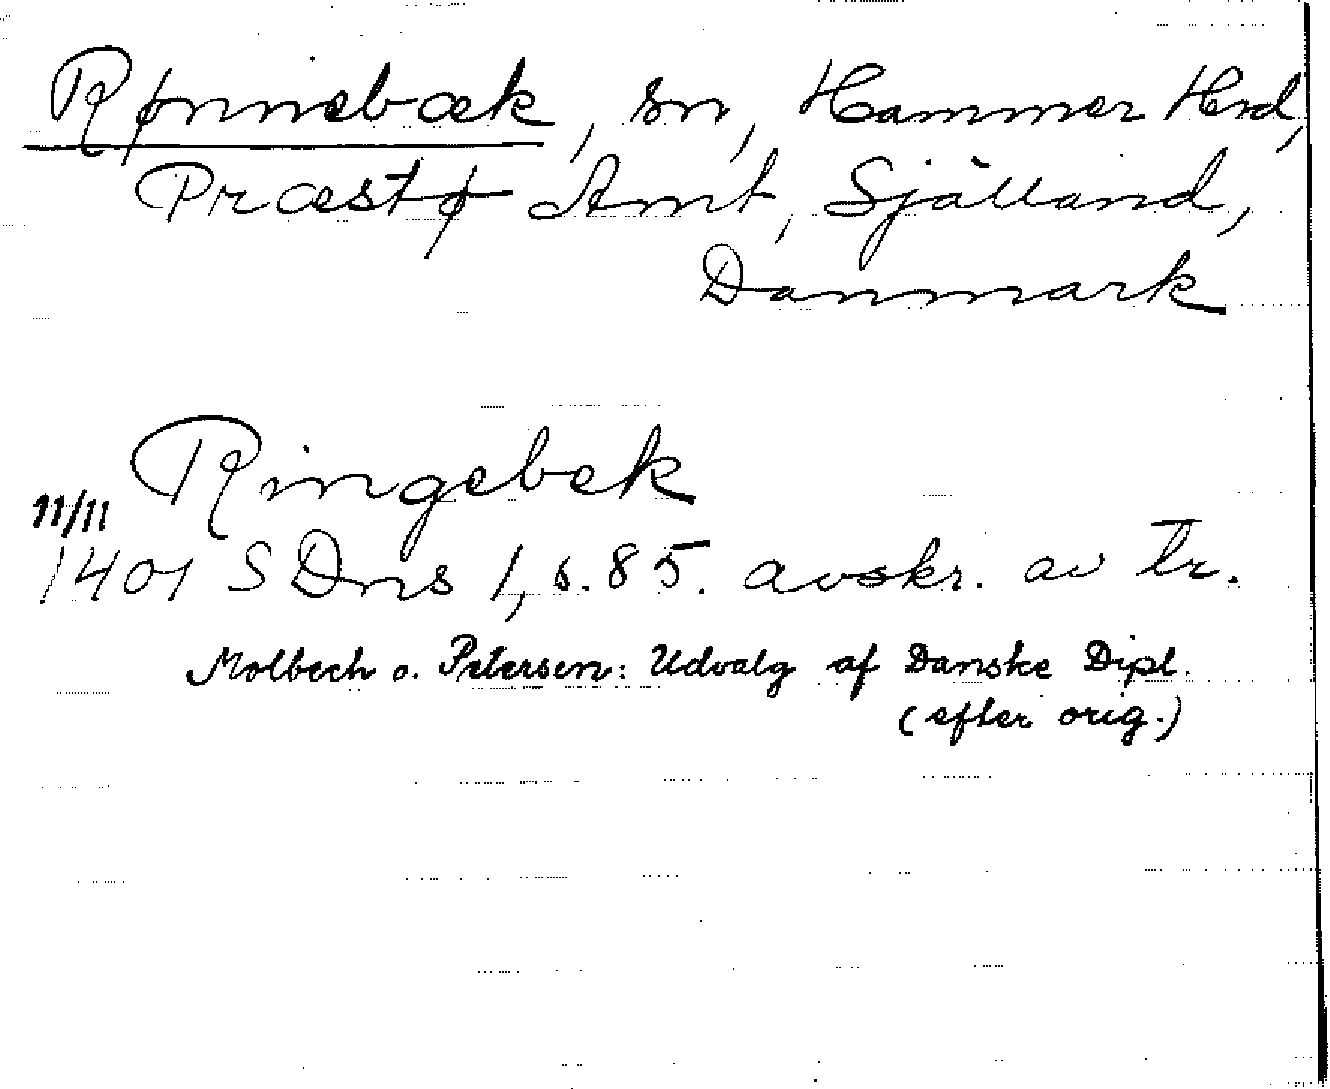 Rønnebæk, sn, Hammer Hrd,
Præstø Amt, Sjålland,
Danmark
Ringebek
11/11
1401 SDns 1, s. 85. avskr. av tr.
Molbech o. Petersen: Udvalg af Danske Dipl.
(efter orig.)